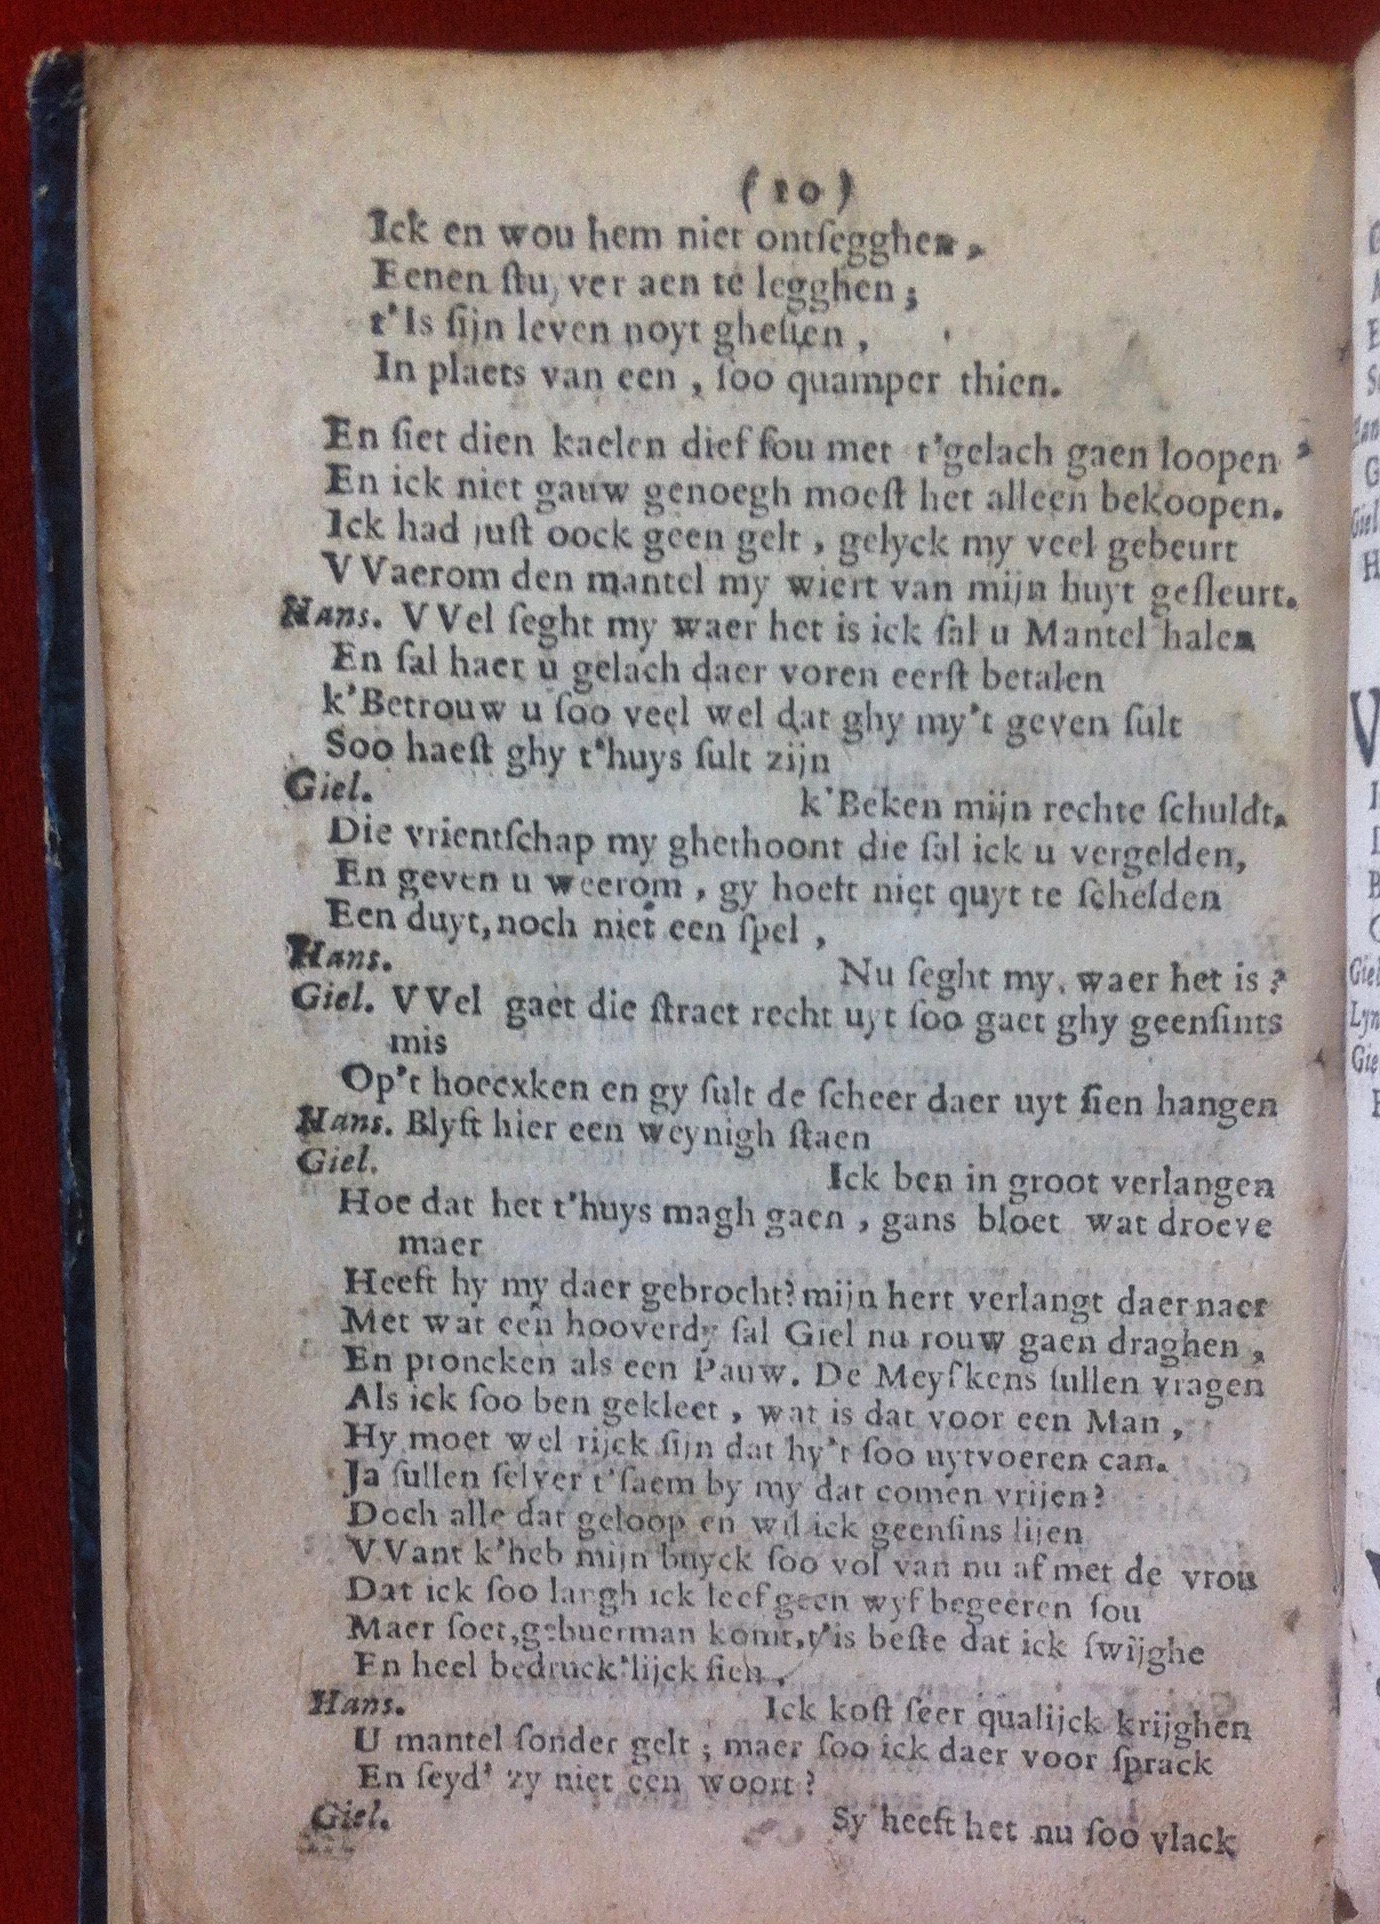 (10)
Ick en wou hem niet ontſegghen,
Eenen ſtuyver aen te legghen;
t'Is ſijn leven noyt gheſien,
In plaets van een, ſoo quamper thien.
En ſiet dien kaelen dief ſou met t'gelach gaen loopen
En ick niet gauw genoegh moeſt het alleen bekoopen.
Ick had juſt oock geen gelt, gelyck my veel gebeurt
VVaerom den mantel my wiert van mijn huyt geſleurt.
Hans. VVel ſeght my waer het is ick ſal u Mantel halen
En ſal haer u gelach daer voren eerſt betalen
k'Betrouw u ſoo veel wel dat ghy my't geven ſult
Soo haeſt ghy t'huys ſult zijn
Giel. k'Beken mijn rechte ſchuldt.
Die vrientſchap my ghethoont die ſal ick u vergelden,
En geven u weerom, gy hoeft niet quyt te ſchelden
Een duyt, noch niet een ſpel,
Hans. Nu ſeght my, waer het is?
Giel. VVel gaet die ſtraet recht uyt ſoo gaet ghy geenſints
mis
Op't hoecxken en gy ſult de ſcheer daer uyt ſien hangen
Hans. Blyft hier een weynigh ſtaen
Giel. Ick ben in groot verlangen
Hoe dat het t'huys magh gaen, gans bloet wat droeve
maer
Heeft hy my daer gebrocht? mijn hert verlangt daer naer
Met wat een hooverdy ſal Giel nu rouw gaen draghen,
En proncken als een Pauw. De Meyſkens ſullen vragen
Als ick ſoo ben gekleet, wat is dat voor een Man,
Hy moet wel rijck ſijn dat hy't ſoo uytvoeren can.
Ja ſullen ſelver t'ſaem by my dat comen vrijen?
Doch alle dat geloop en wil ick geenſins lijen
VVant k'heb mijn buyck ſoo vol van nu af met de vrou
Dat ick ſoo langh ick leef geen wyf begeeren ſou
Maer ſoet, gebuerman komt, t'is beſte dat ick ſwijghe
En heel bedruck'lijck ſien.
Hans. Ick koſt ſeer qualijck krijghen
U mantel ſonder gelt; maer ſoo ick daer voor ſprack
En ſeyd' zy niet een woort?
Giel. Sy heeft het nu ſoo vlack